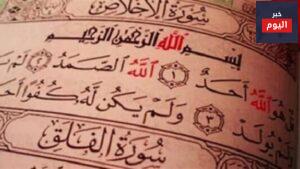 خبر
اليوم
سُورَةُ الإِخْلَاصِ
بِسْمِ اللَّهِ الرَّحْمَٰنِ الرَّحِيمِ
هُوَ اللَّهُ أَحَدٌ ١ اللَّهُ الصَّمَدُ ٢ لَمْ
يُولَدْ ٣ وَلَمْ يَكُن لَّهُ كُفُوًا
سُورَةُ الْفَلَقِ